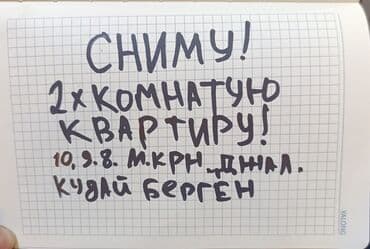 СНИМУ!
2х КОМНАТУЮ
КВАРТИРУ!
10,9.8. М.КРН.,ДЖАЛ.
КУДАЙ БЕРГЕН
YALONG